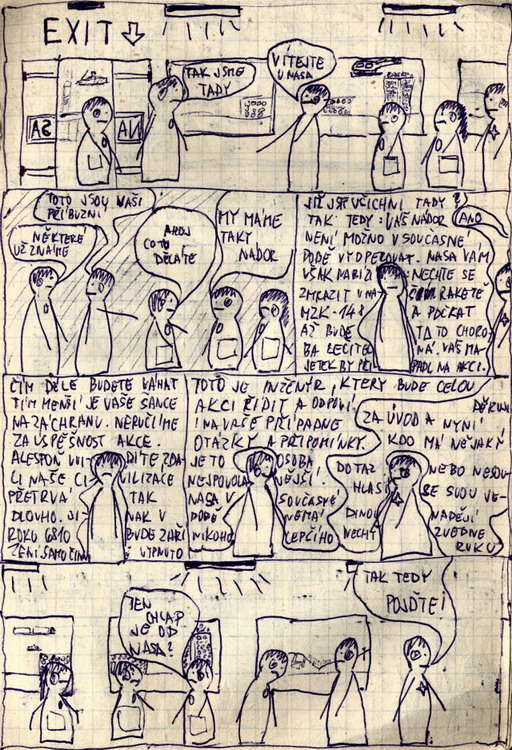 EXIT
TAK JSME
TADY
VÍTEJTE
U NASA
TOTO JSOU VAŠI
PŘÍBUZNÍ
NĚKTERÉ
UŽ ZNÁTE
AHOJ
CO TU
DĚLÁTE
MY MÁME
TAKY
NÁDOR
JIŽ JSTE VŠICHNI TADY?
ANO
TAK TEDY: VÁŠ NÁDOR
NENÍ MOŽNO V SOUČASNÉ
DOBĚ VYOPEROVAT. NASA VÁM
VŠAK NABÍZÍ: NECHTE SE
ZMRAZIT V RAKETĚ
MZK-148 A POČKAT
AŽ BUDE TATO CHORO-
BA LÉČITEL NÁ. VÁŠ MA-
JETEK BY PŘI PADL NA AKCI.
ČÍM DÉLE BUDETE VÁHAT
TÍM MENŠÍ JE VAŠE ŠANCE
NA ZÁCHRANU. NERUČÍME
ZA ÚSPĚŠNOST AKCE.
ALESPOŇ UVI DÍTE ZDA
LI NAŠE CI VILIZACE
PŘETRVÁ TAK
DLOUHO. JI NAK V
ROKU 6810 BUDE ZAŘÍ
ZENÍ SAMOČINNĚ VYPNUTO
TOTO JE INŽENÝR, KTERÝ BUDE CELOU
AKCI ŘÍDIT A ODPOVÍ
I NA VAŠE PŘÍPADNÉ
OTÁZKY A PŘIPOMÍNKY.
JE TO OSOBA
NEJPOVOLA NĚJŠÍ.
NASA V SOUČASNÉ
DOBĚ NEMÁ
NIKOHO LEPŠÍHO
DĚKUJI
ZA ÚVOD A NYNÍ
KDO MÁ NĚJAKÝ
DOTAZ NEBO NESOU-
HLASÍ SE SVOU VE-
DINOU NADĚJÍ
NECHŤ ZVEDNE
RUKU
JEN
CHLAP
JE OD
NASA?
TAK TEDY
POJĎTE!